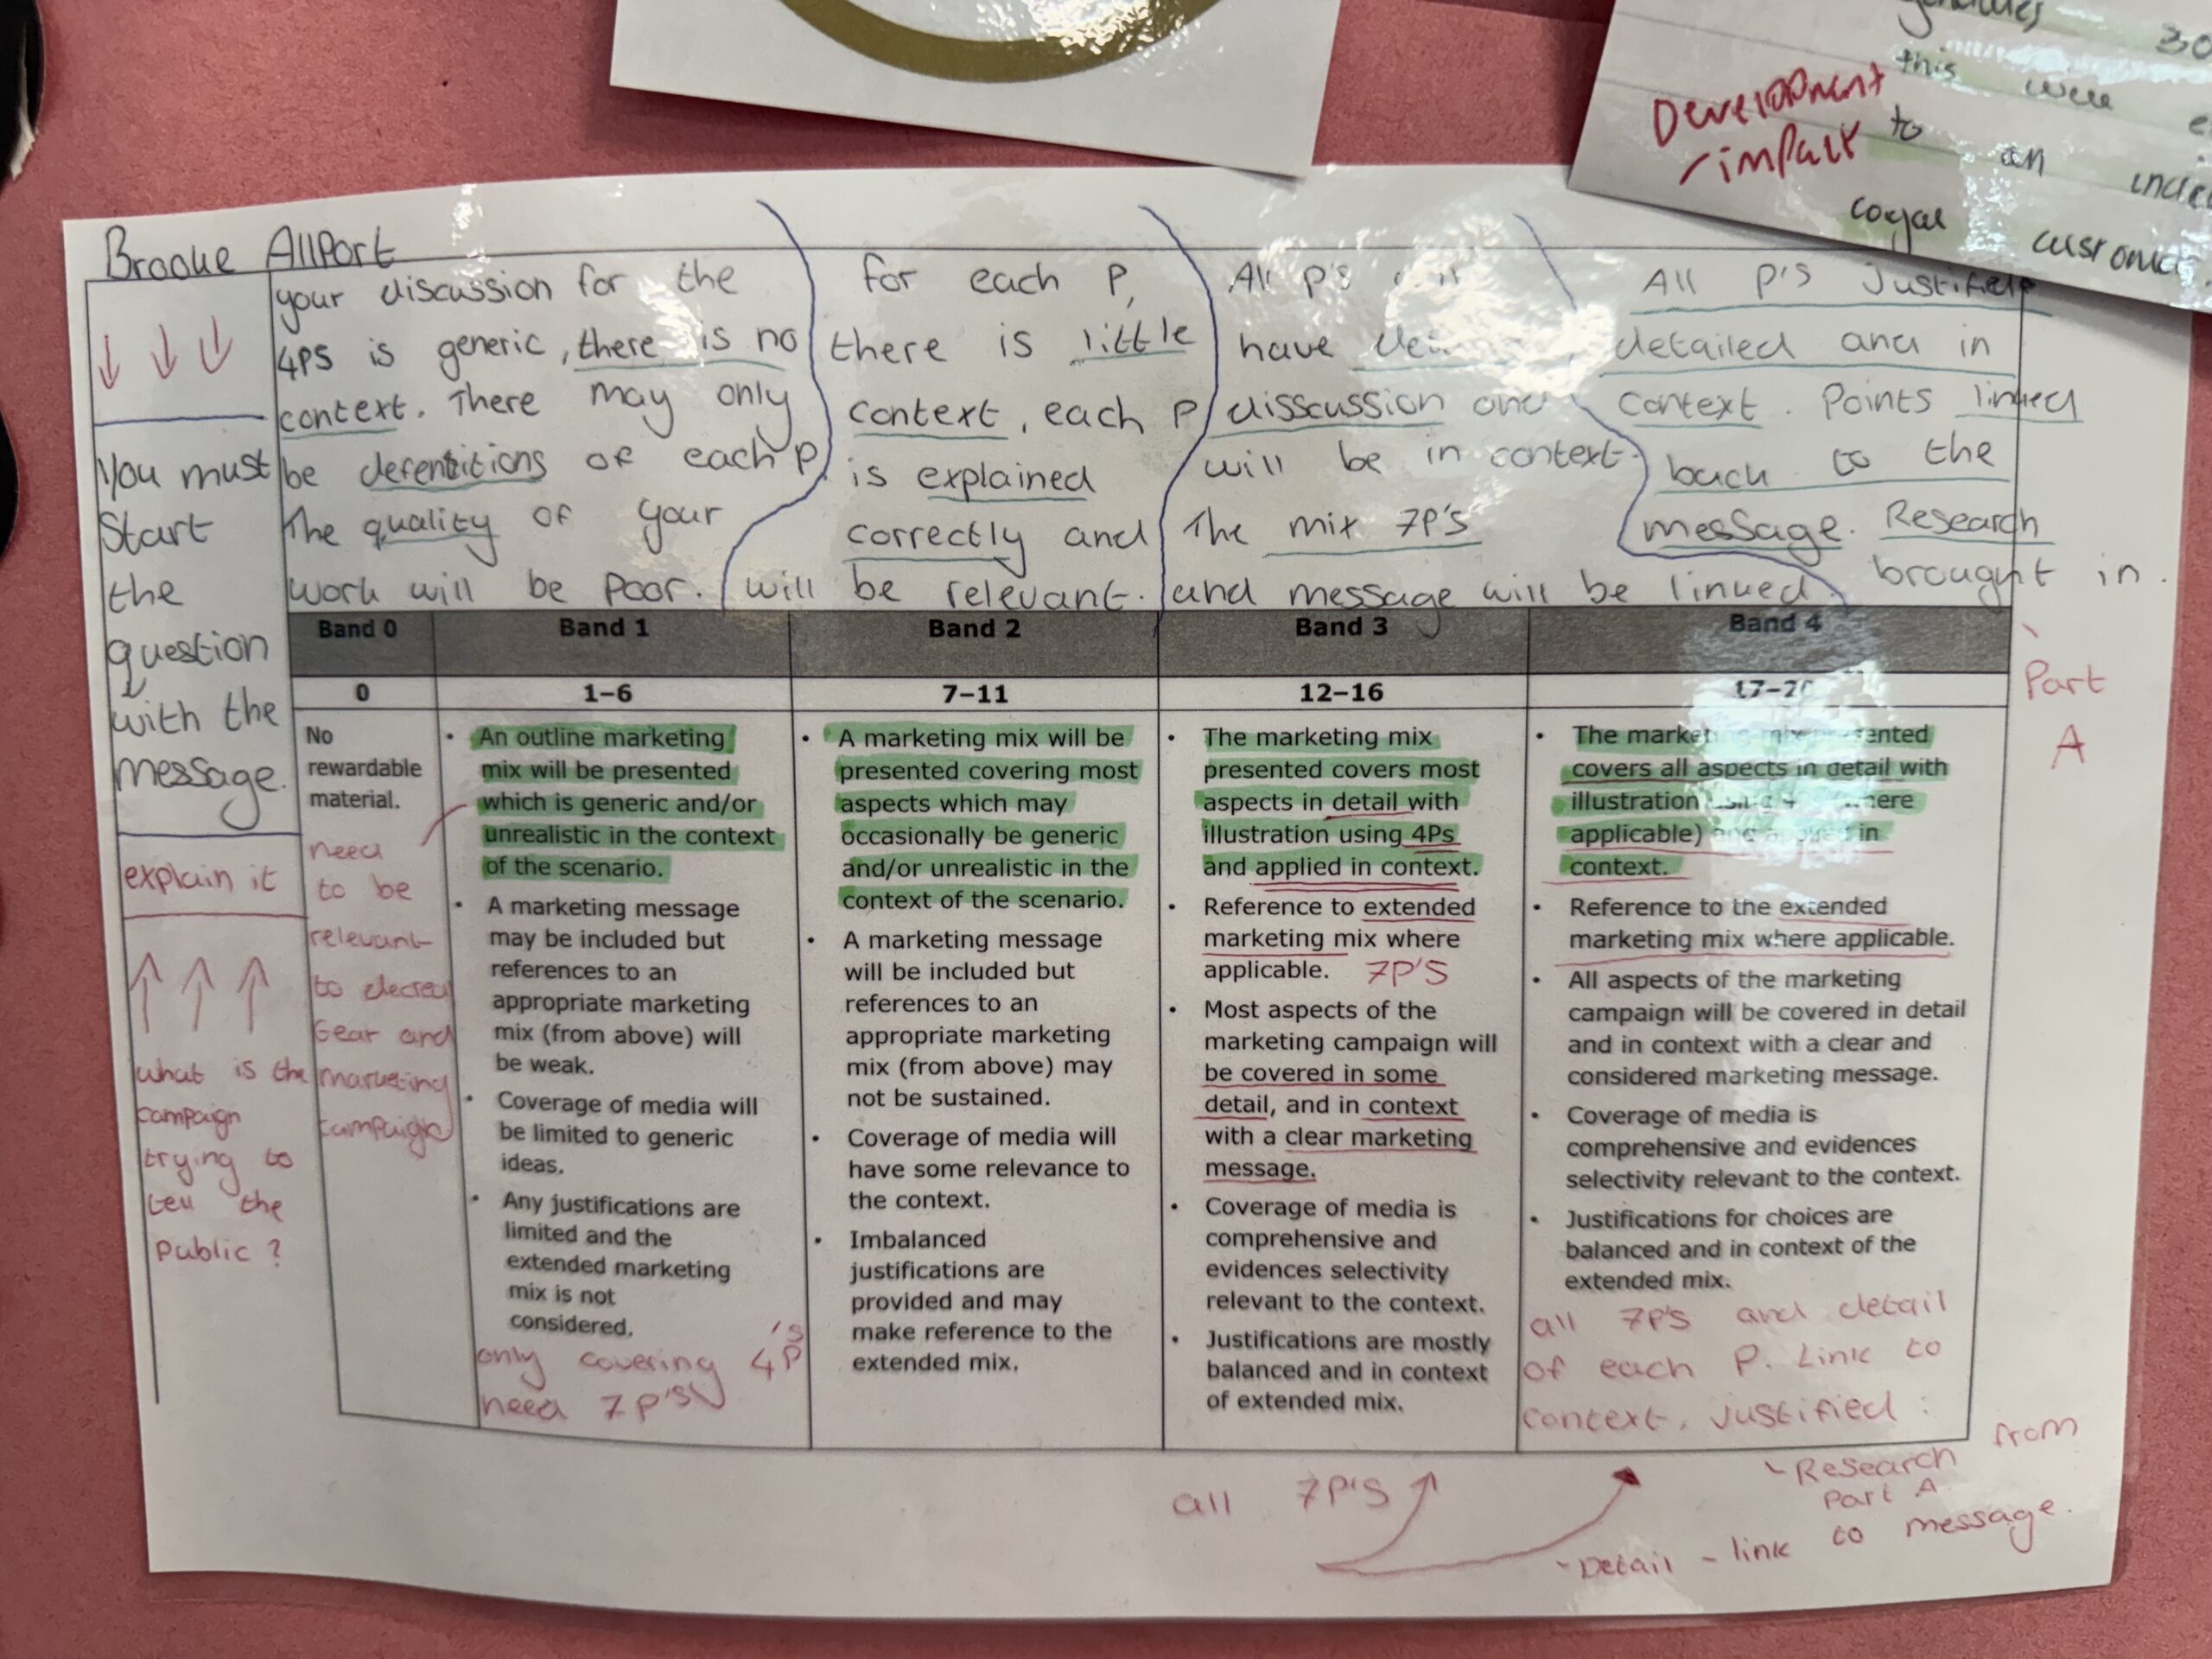 generates
30
this were
Development to an
/impact
loyal customer
Brooke Allport
your discussion for the
4Ps is generic, there is no
context. There may only
be defenitions of each P
The quality of your
work will be poor.
for each P,
there is little
context, each P
is explained
correctly and
will be relevant.
All P's
have
disscussion and
will be in context.
The mix 7P's
and message will be linked.
All P's Justified
detailed and in
context. Points linked
back to the
message. Research
brought in.
Part
A
You must
Start
the
question
with the
message.
explain it
what is the
campaign
trying to
tell the
public?
Band 0
0
No
rewardable
material.
need
to be
relevant
to
Gear and
marketing
campaign
Band 1
1–6
• An outline marketing
mix will be presented
which is generic and/or
unrealistic in the context
of the scenario.
• A marketing message
may be included but
references to an
appropriate marketing
mix (from above) will
be weak.
• Coverage of media will
be limited to generic
ideas.
• Any justifications are
limited and the
extended marketing
mix is not
considered.
only covering 4P's
need 7P's
Band 2
7–11
• A marketing mix will be
presented covering most
aspects which may
occasionally be generic
and/or unrealistic in the
context of the scenario.
• A marketing message
will be included but
references to an
appropriate marketing
mix (from above) may
not be sustained.
• Coverage of media will
have some relevance to
the context.
• Imbalanced
justifications are
provided and may
make reference to the
extended mix.
Band 3
12–16
• The marketing mix
presented covers most
aspects in detail with
illustration using 4Ps
and applied in context.
• Reference to extended
marketing mix where
applicable. 7P'S
• Most aspects of the
marketing campaign will
be covered in some
detail, and in context
with a clear marketing
message.
• Coverage of media is
comprehensive and
evidences selectivity
relevant to the context.
• Justifications are mostly
balanced and in context
of extended mix.
Band 4
17–20
• The marketing mix presented
covers all aspects in detail with
illustration using 4 where
applicable) and applied in
context.
• Reference to the extended
marketing mix where applicable.
• All aspects of the marketing
campaign will be covered in detail
and in context with a clear and
considered marketing message.
• Coverage of media is
comprehensive and evidences
selectivity relevant to the context.
• Justifications for choices are
balanced and in context of the
extended mix.
all 7P's and detail
of each P. Link to
context. Justified:
- Research from
Part A
all 7P's
- Detail - link to message.